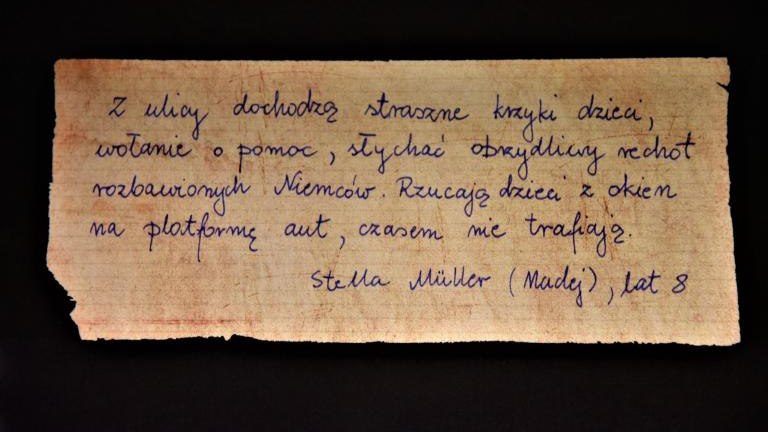 Z ulicy dochodzą straszne krzyki dzieci,
wołanie o pomoc, słychać obrzydliwy rechot
rozbawionych Niemców. Rzucają dzieci z okien
na platformę aut, czasem nie trafiają.
Stella Müller (Madej), lat 8